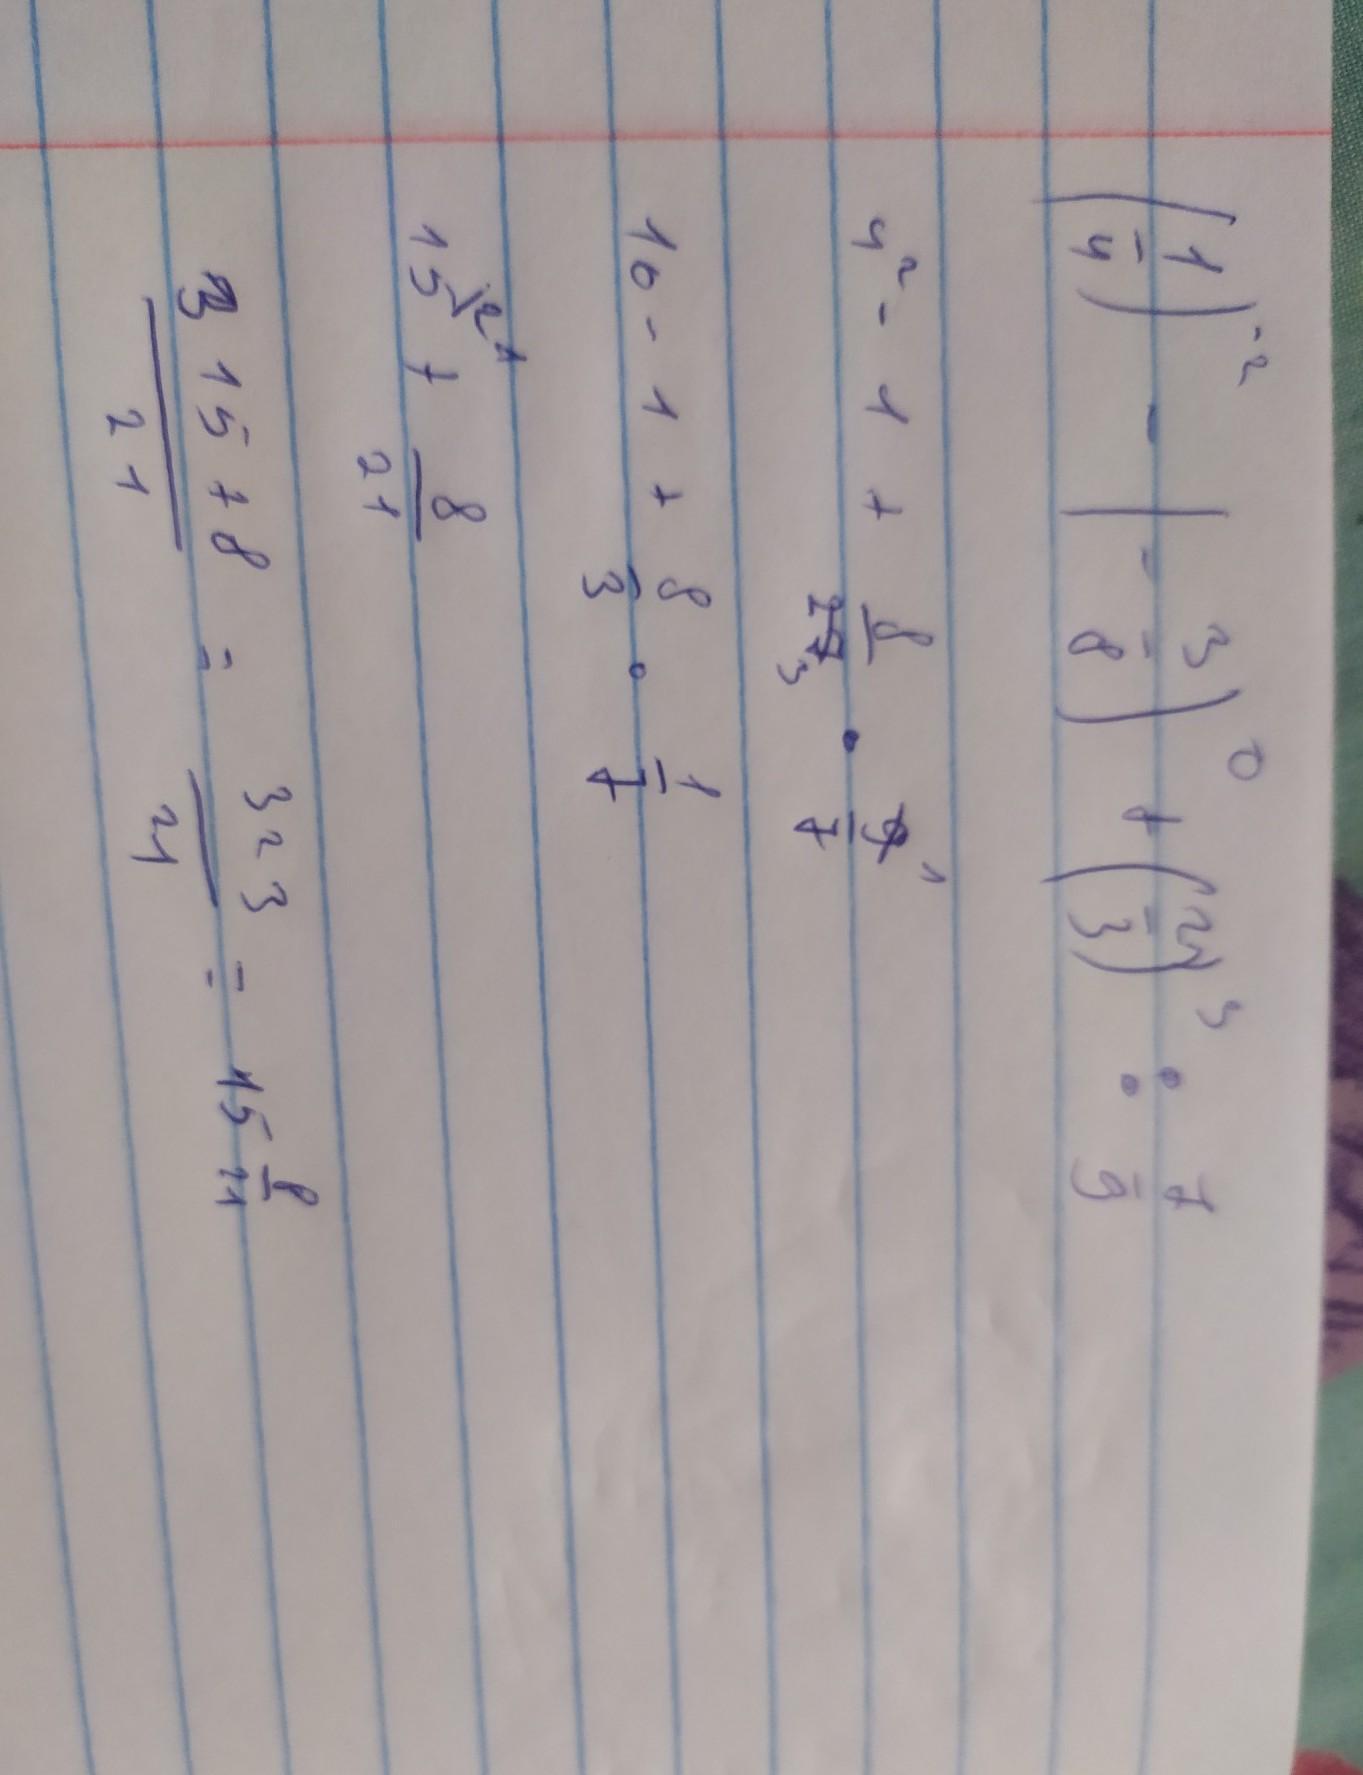 (1/4)^-2 - (-3/8)^0 + (2/3)^3 : 7/9
4^2 - 1 + 8/27 3 · 9/7 1
16 - 1 + 8/3 · 1/7
15 21 + 8/21
315 + 8/21 = 323/21 = 15 8/21